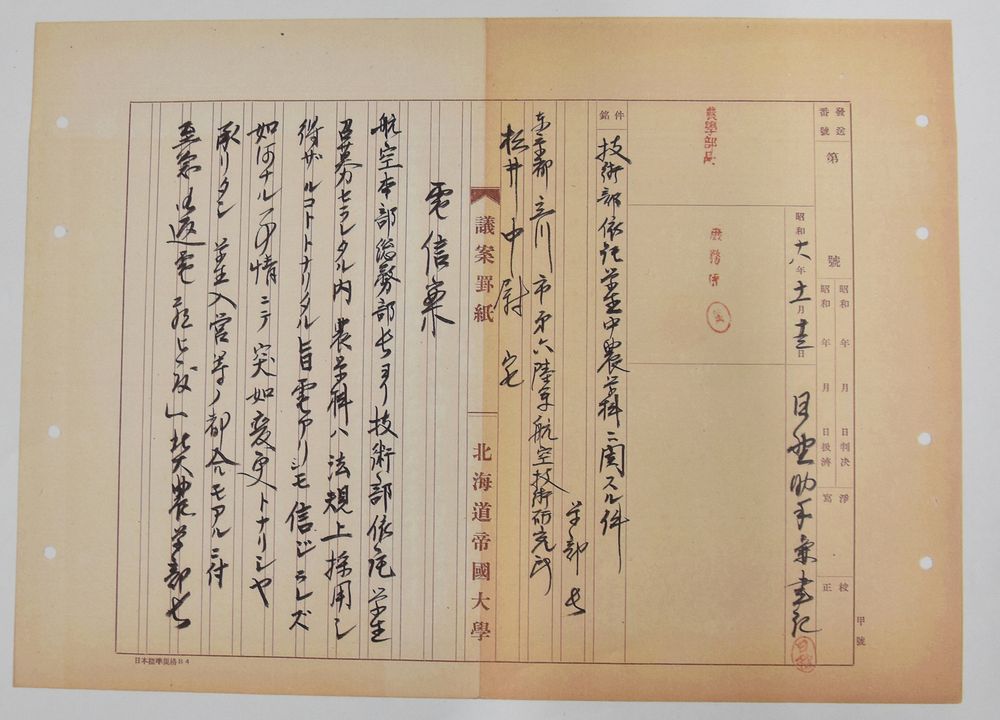 甲號
發送番號 第 號
昭和 年 月 日判決 淨寫 校正
昭和 年 月 日扱濟
昭和十六年十一月十三日
目黑助手兼書記
農學部長
件銘
技術部依託学生中農学科ニ関スル件
学部長
東京都立川市第六陸軍航空技術研究所
松井中尉宛
議案罫紙
北海道帝國大學
電信案
航空本部総務部長ヨリ技術部依託学生
召募セラレタル内農学科ハ法規上採用シ
得ザルコトトナリタル旨電アリシモ信ジラレズ
如何ナル事情ニテ突如変更トナリシヤ
承リタシ 学生入営等ノ都合モアルニ付
至急御返電 乞フ 北大農学部長
日本標準規格B4